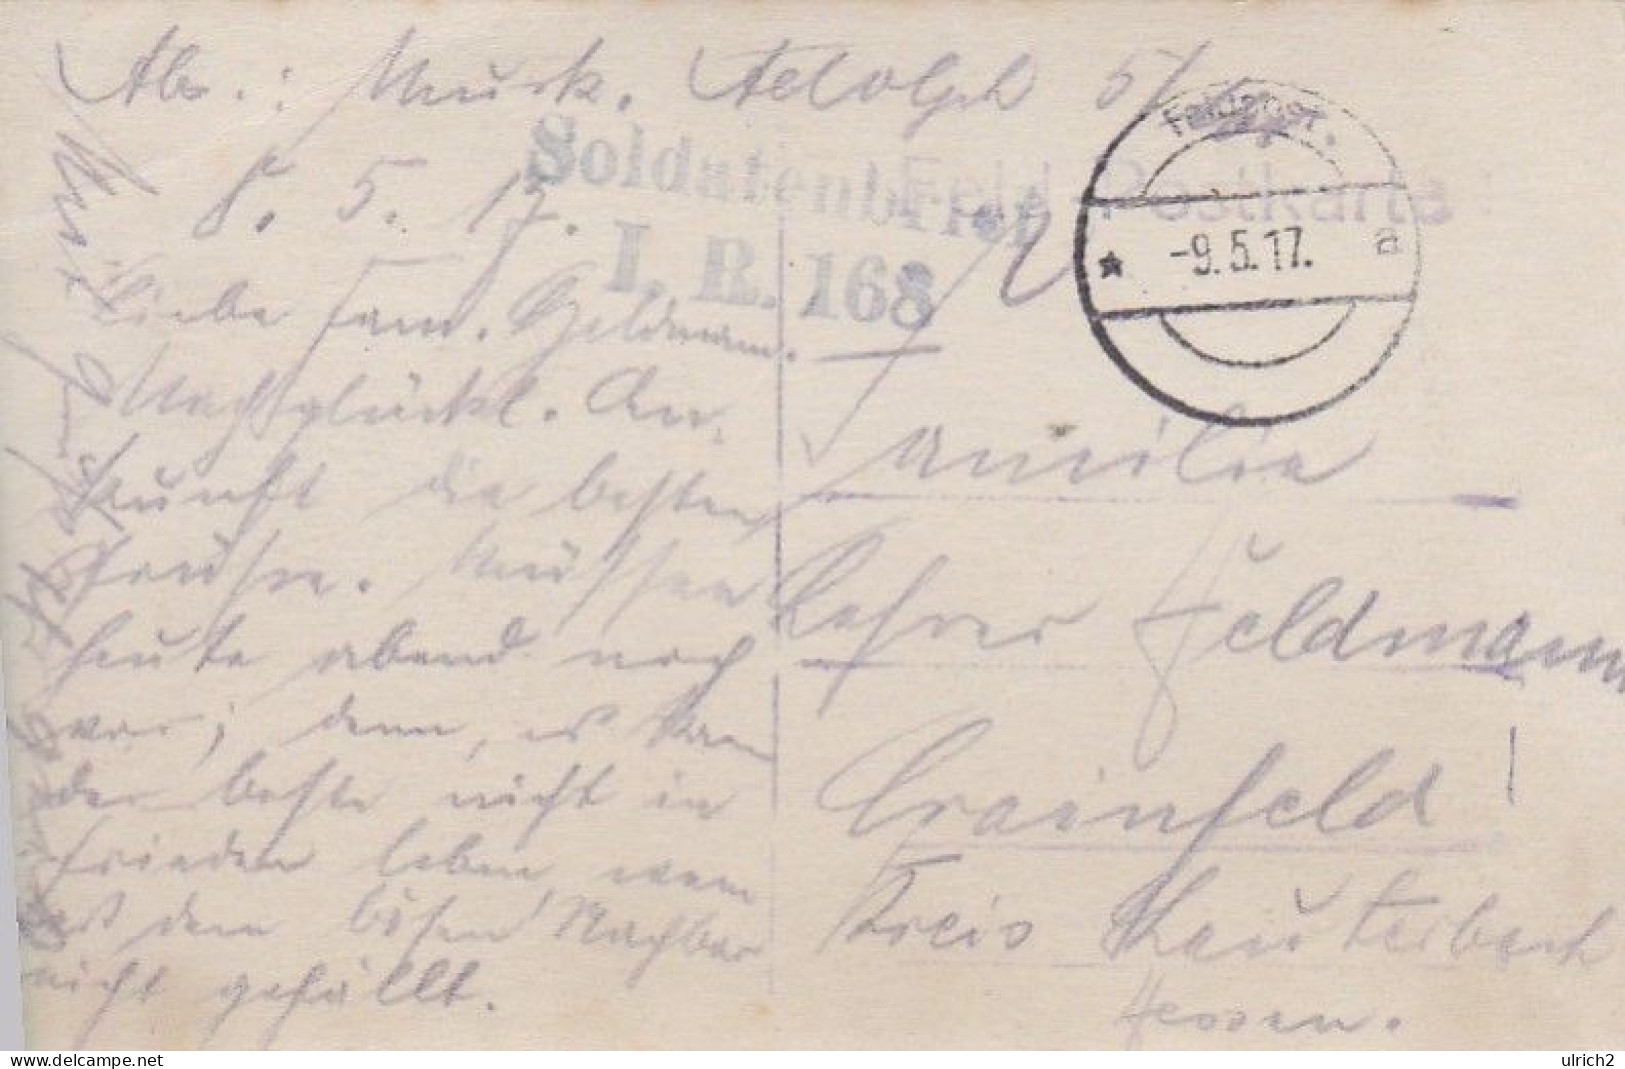 Abs.: Musk. Adolph 5/
8. 5. 17.
Liebe Fam. Feldmann.
Nach glückl. An-
kunft die besten
Grüsse. Müssen
heute abend noch
vor; denn, es kann
der beste nicht in
Frieden leben, wenn
es dem bösen Nachbar
nicht gefällt.
Soldatenbrief
I. R. 168
Feld-Postkarte
Feldpost.
* -9.5.17. a
Familie
Lehrer Feldmann
Crainfeld!
Kreis Lauterbach
Hessen.
ulrich2